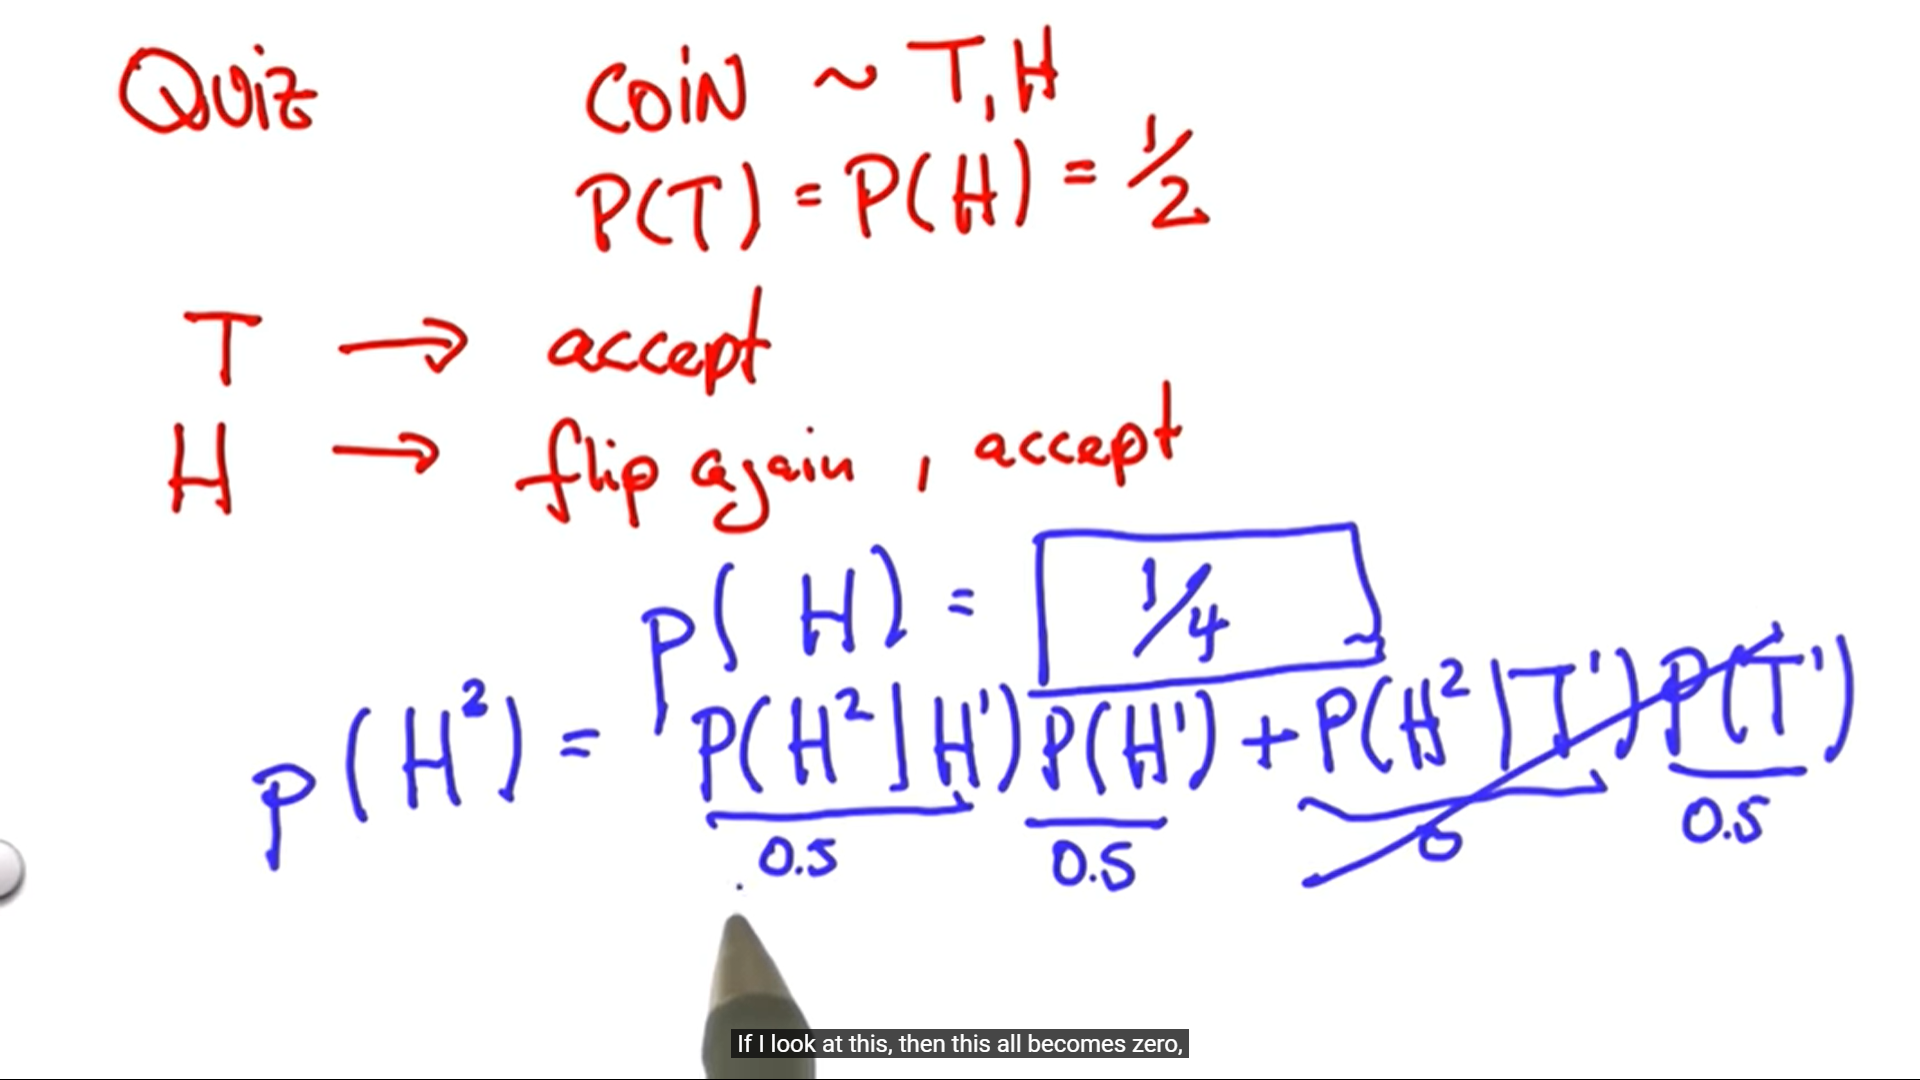 Quiz COIN ~ T, H
P(T) = P(H) = 1/2
T → accept
H → flip again, accept
P(H) = 1/4
P(H²) = P(H²|H¹) P(H¹) + P(H²|T¹) P(T¹)
0.5 0.5 0 0.5
If I look at this, then this all becomes zero,